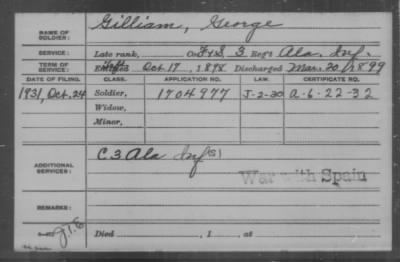 NAME OF SOLDIER: Gilliam, George
SERVICE: Late rank, Co. F&S 3 Reg't Ala. Inf.
TERM OF SERVICE: Enlisted Oct. 17, 1898. Discharged Mar. 20, 1899
DATE OF FILING. CLASS. APPLICATION NO. LAW. CERTIFICATE NO.
1931, Oct. 24 Soldier, 1704977 J-2-30 A-6-22-32
Widow,
Minor,
ADDITIONAL SERVICES: C 3 Ala Inf (S)
War with Spain
REMARKS:
Died , 1 , at